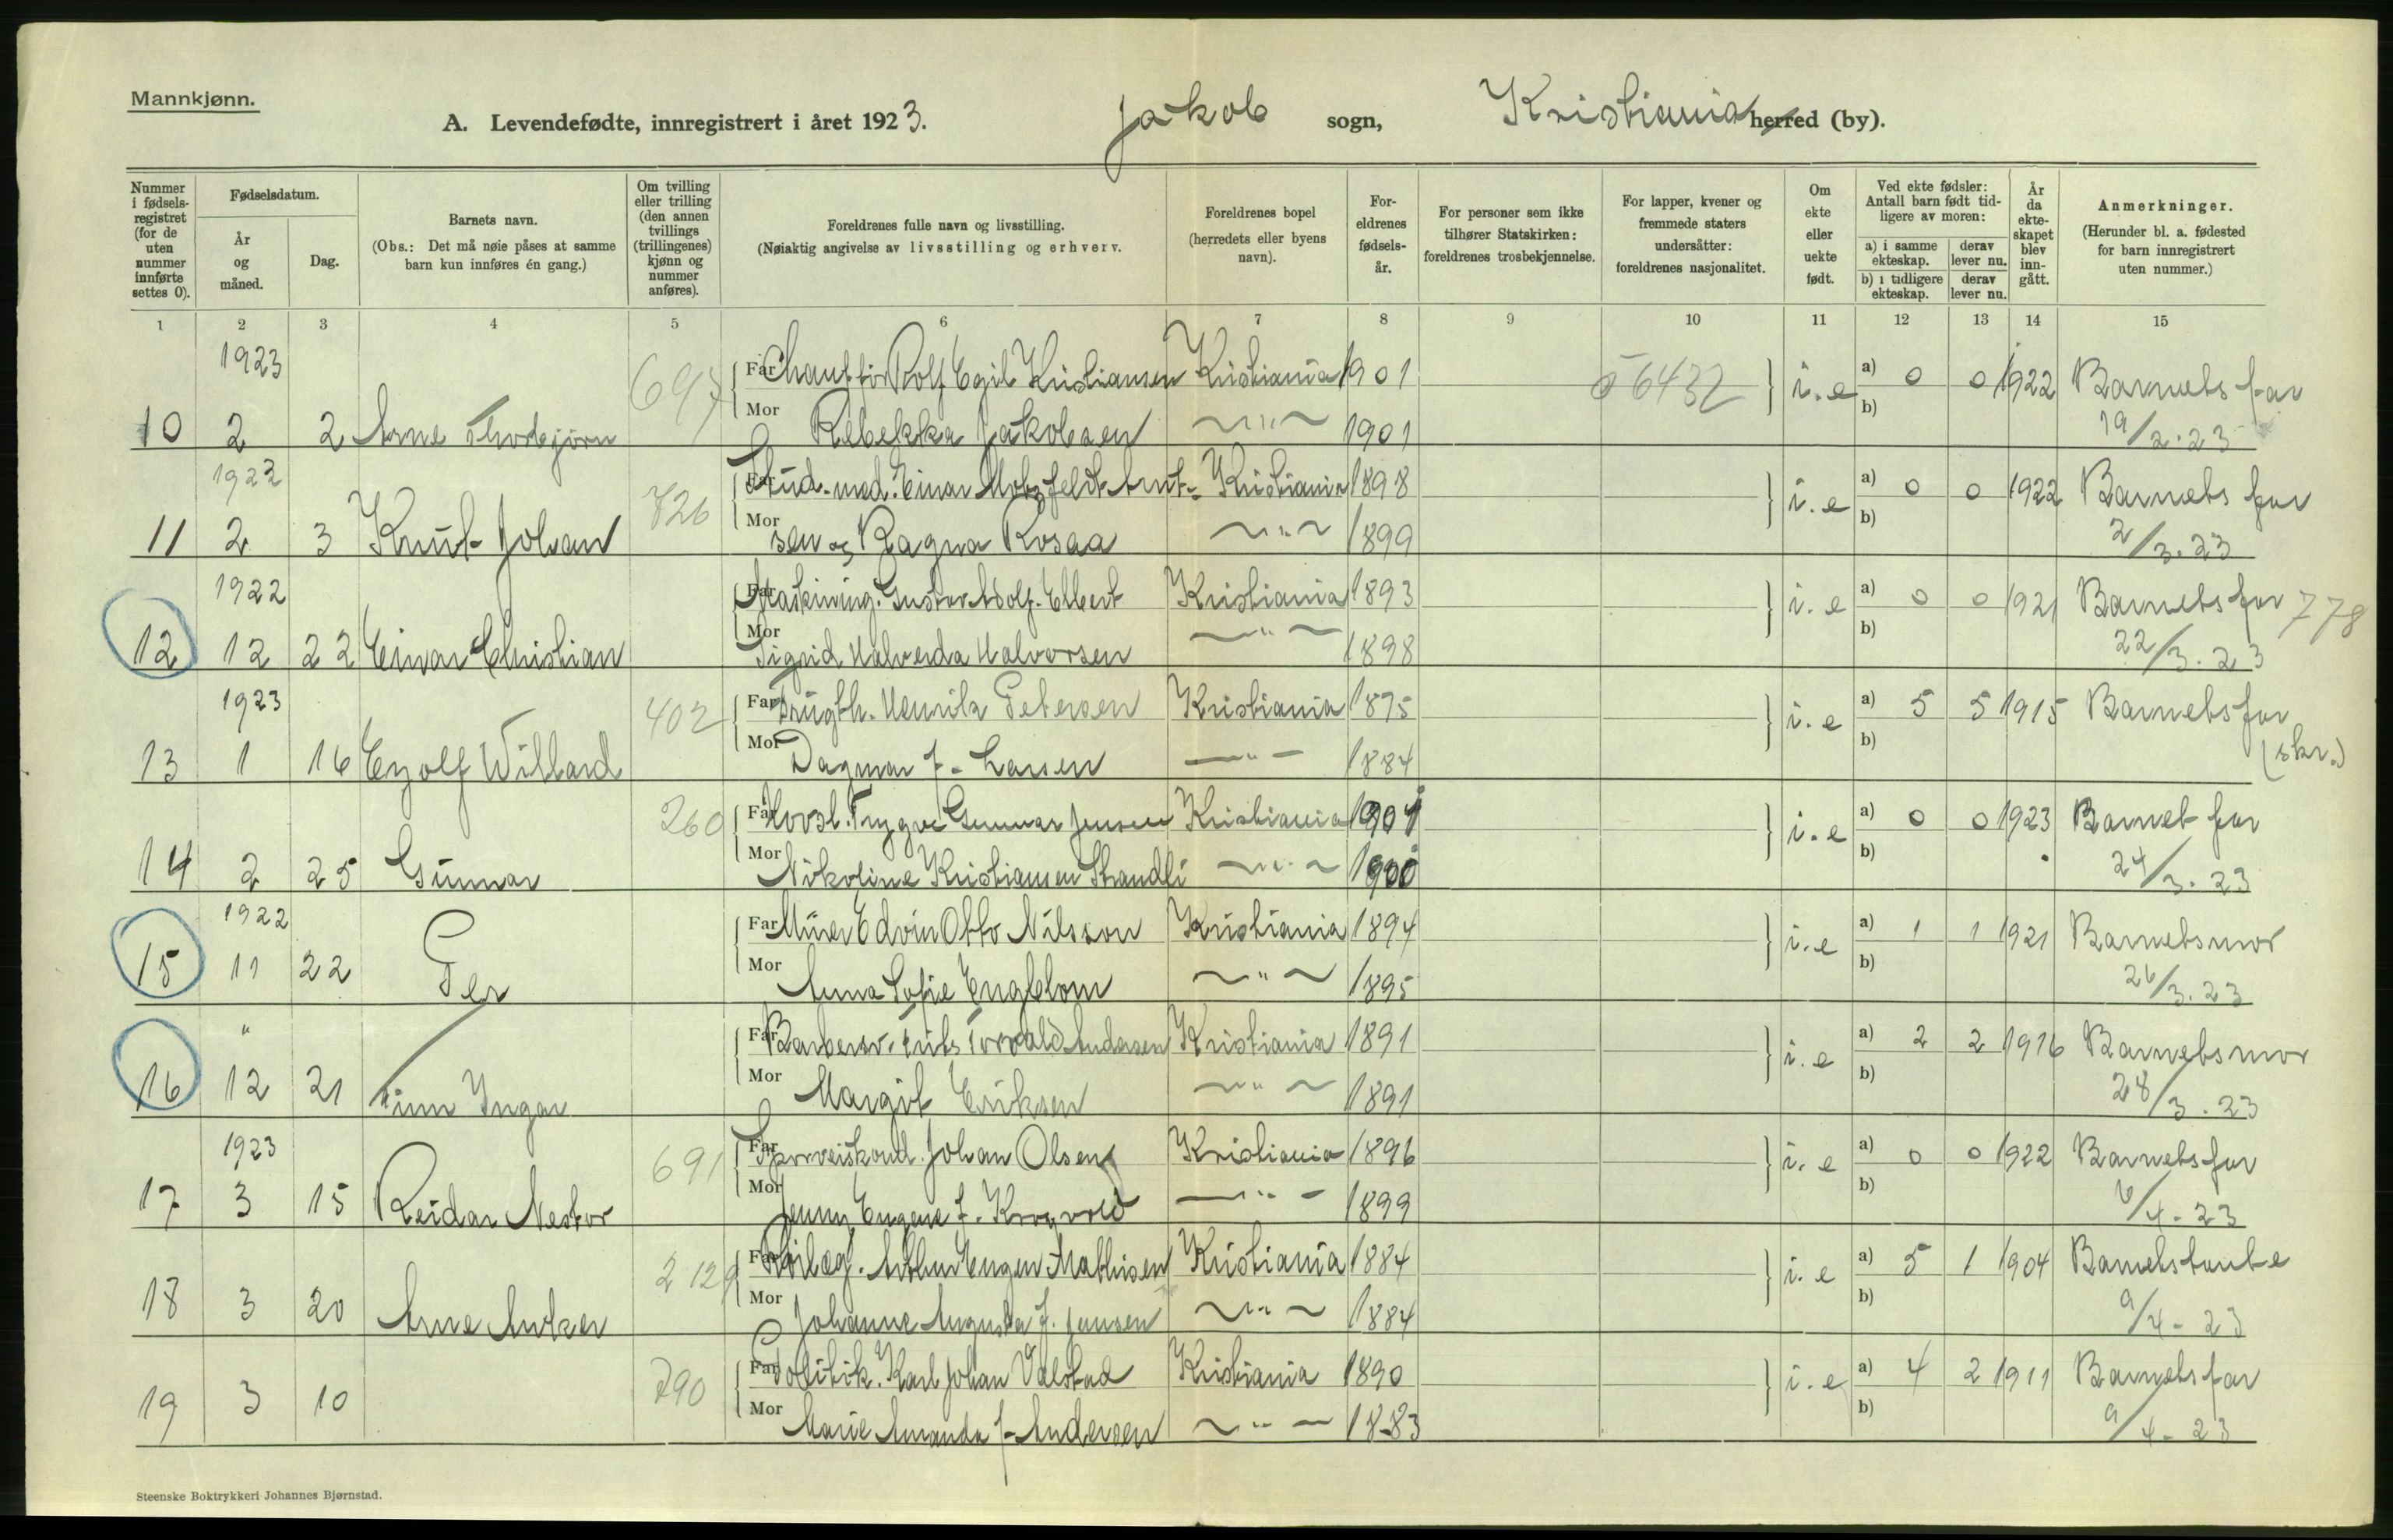 Mannkjønn.
A. Levendefødte, innregistrert i året 1923. Jakob sogn, Kristiania herred (by).
Nummer i fødselsregistret (for de uten nummer innførte settes 0).
Fødselsdatum.
År og måned.
Dag.
Barnets navn.
(Obs.: Det må nøie påses at samme barn kun innføres én gang.)
Om tvilling eller trilling (den annen tvillings (trillingenes) kjønn og nummer anføres).
Foreldrenes fulle navn og livsstilling.
(Nøiaktig angivelse av livsstilling og erhverv.
Foreldrenes bopel (herredets eller byens navn).
Foreldrenes fødselsår.
For personer som ikke tilhører Statskirken: foreldrenes trosbekjennelse.
For lapper, kvener og fremmede staters undersåtter: foreldrenes nasjonalitet.
Om ekte eller uekte født.
Ved ekte fødsler: Antall barn født tidligere av moren:
a) i samme ekteskap. derav lever nu.
b) i tidligere ekteskap. derav lever nu.
År da ekteskapet blev inngått.
Anmerkninger.
(Herunder bl. a. fødested for barn innregistrert uten nummer.)
1 2 3 4 5 6 7 8 9 10 11 12 13 14 15
1923 697 Far Chauffør Rolf Egil Kristiansen Kristiania 1901 6432 i. e a) 0 0 1922 Barnets far
10 2 2 Arne Thorbjørn Mor Rebekka Jakobsen — " — 1901 b) 19/2. 23
1923 726 Far Stud. med. Einar Motzfeldt Arnt- Kristiania 1898 i. e a) 0 0 1922 Barnets far
11 2 3 Knut Johan Mor sen og Ragna Rosaa — " — 1899 b) 2/3. 23
1922 Far Maskining. Gustav Adolf Elbert Kristiania 1893 i. e a) 0 0 1921 Barnets far 778
12 12 22 Einar Christian Mor Sigrid Halverda Halvorsen — " — 1898 b) 22/3. 23
1923 402 Far Henrik Petersen Kristiania 1875 i. e a) 5 5 1915 Barnets far
13 1 16 Eyolf Willard Mor Dagmar f. Larsen — " — 1884 b) (skr.)
260 Far Hovsl. Trygve Gunnar Jensen Kristiania 1901 i. e a) 0 0 1923 Barnet far
14 2 25 Gunnar Mor Nikoline Kristiansen Strandli — " — 1900 b) 24/3. 23
1922 Far Murer Edvin Otto Nilsson Kristiania 1894 i. e a) 1 1 1921 Barnets mor
15 11 22 Per Mor Anna Sofie Engblom — " — 1895 b) 26/3. 23
" Far Barbersv. Frits Torvald Andersen Kristiania 1891 i. e a) 2 2 1916 Barnets mor
16 12 21 Finn Yngar Mor Margit Eriksen — " — 1891 b) 28/3. 23
1923 691 Far Sporveiskond. Johan Olsen Kristiania 1896 i. e a) 0 0 1922 Barnets far
17 3 15 Reidar Nestor Mor Jenny Eugenie f. Krogvold — " — 1899 b) 6/4. 23
2129 Far Arthur Eugen Mathisen Kristiania 1884 i. e a) 5 1 1904 Barnets tante
18 3 20 Arne Anker Mor Johanne Augusta f. Jensen — " — 1884 b) 9/4. 23
790 Far Politik. Karl Johan Valstad Kristiania 1890 i. e a) 4 2 1911 Barnets far
19 3 10 Mor Marie Amanda f. Andersen — " — 1883 b) 9/4. 23
Steenske Boktrykkeri Johannes Bjørnstad.